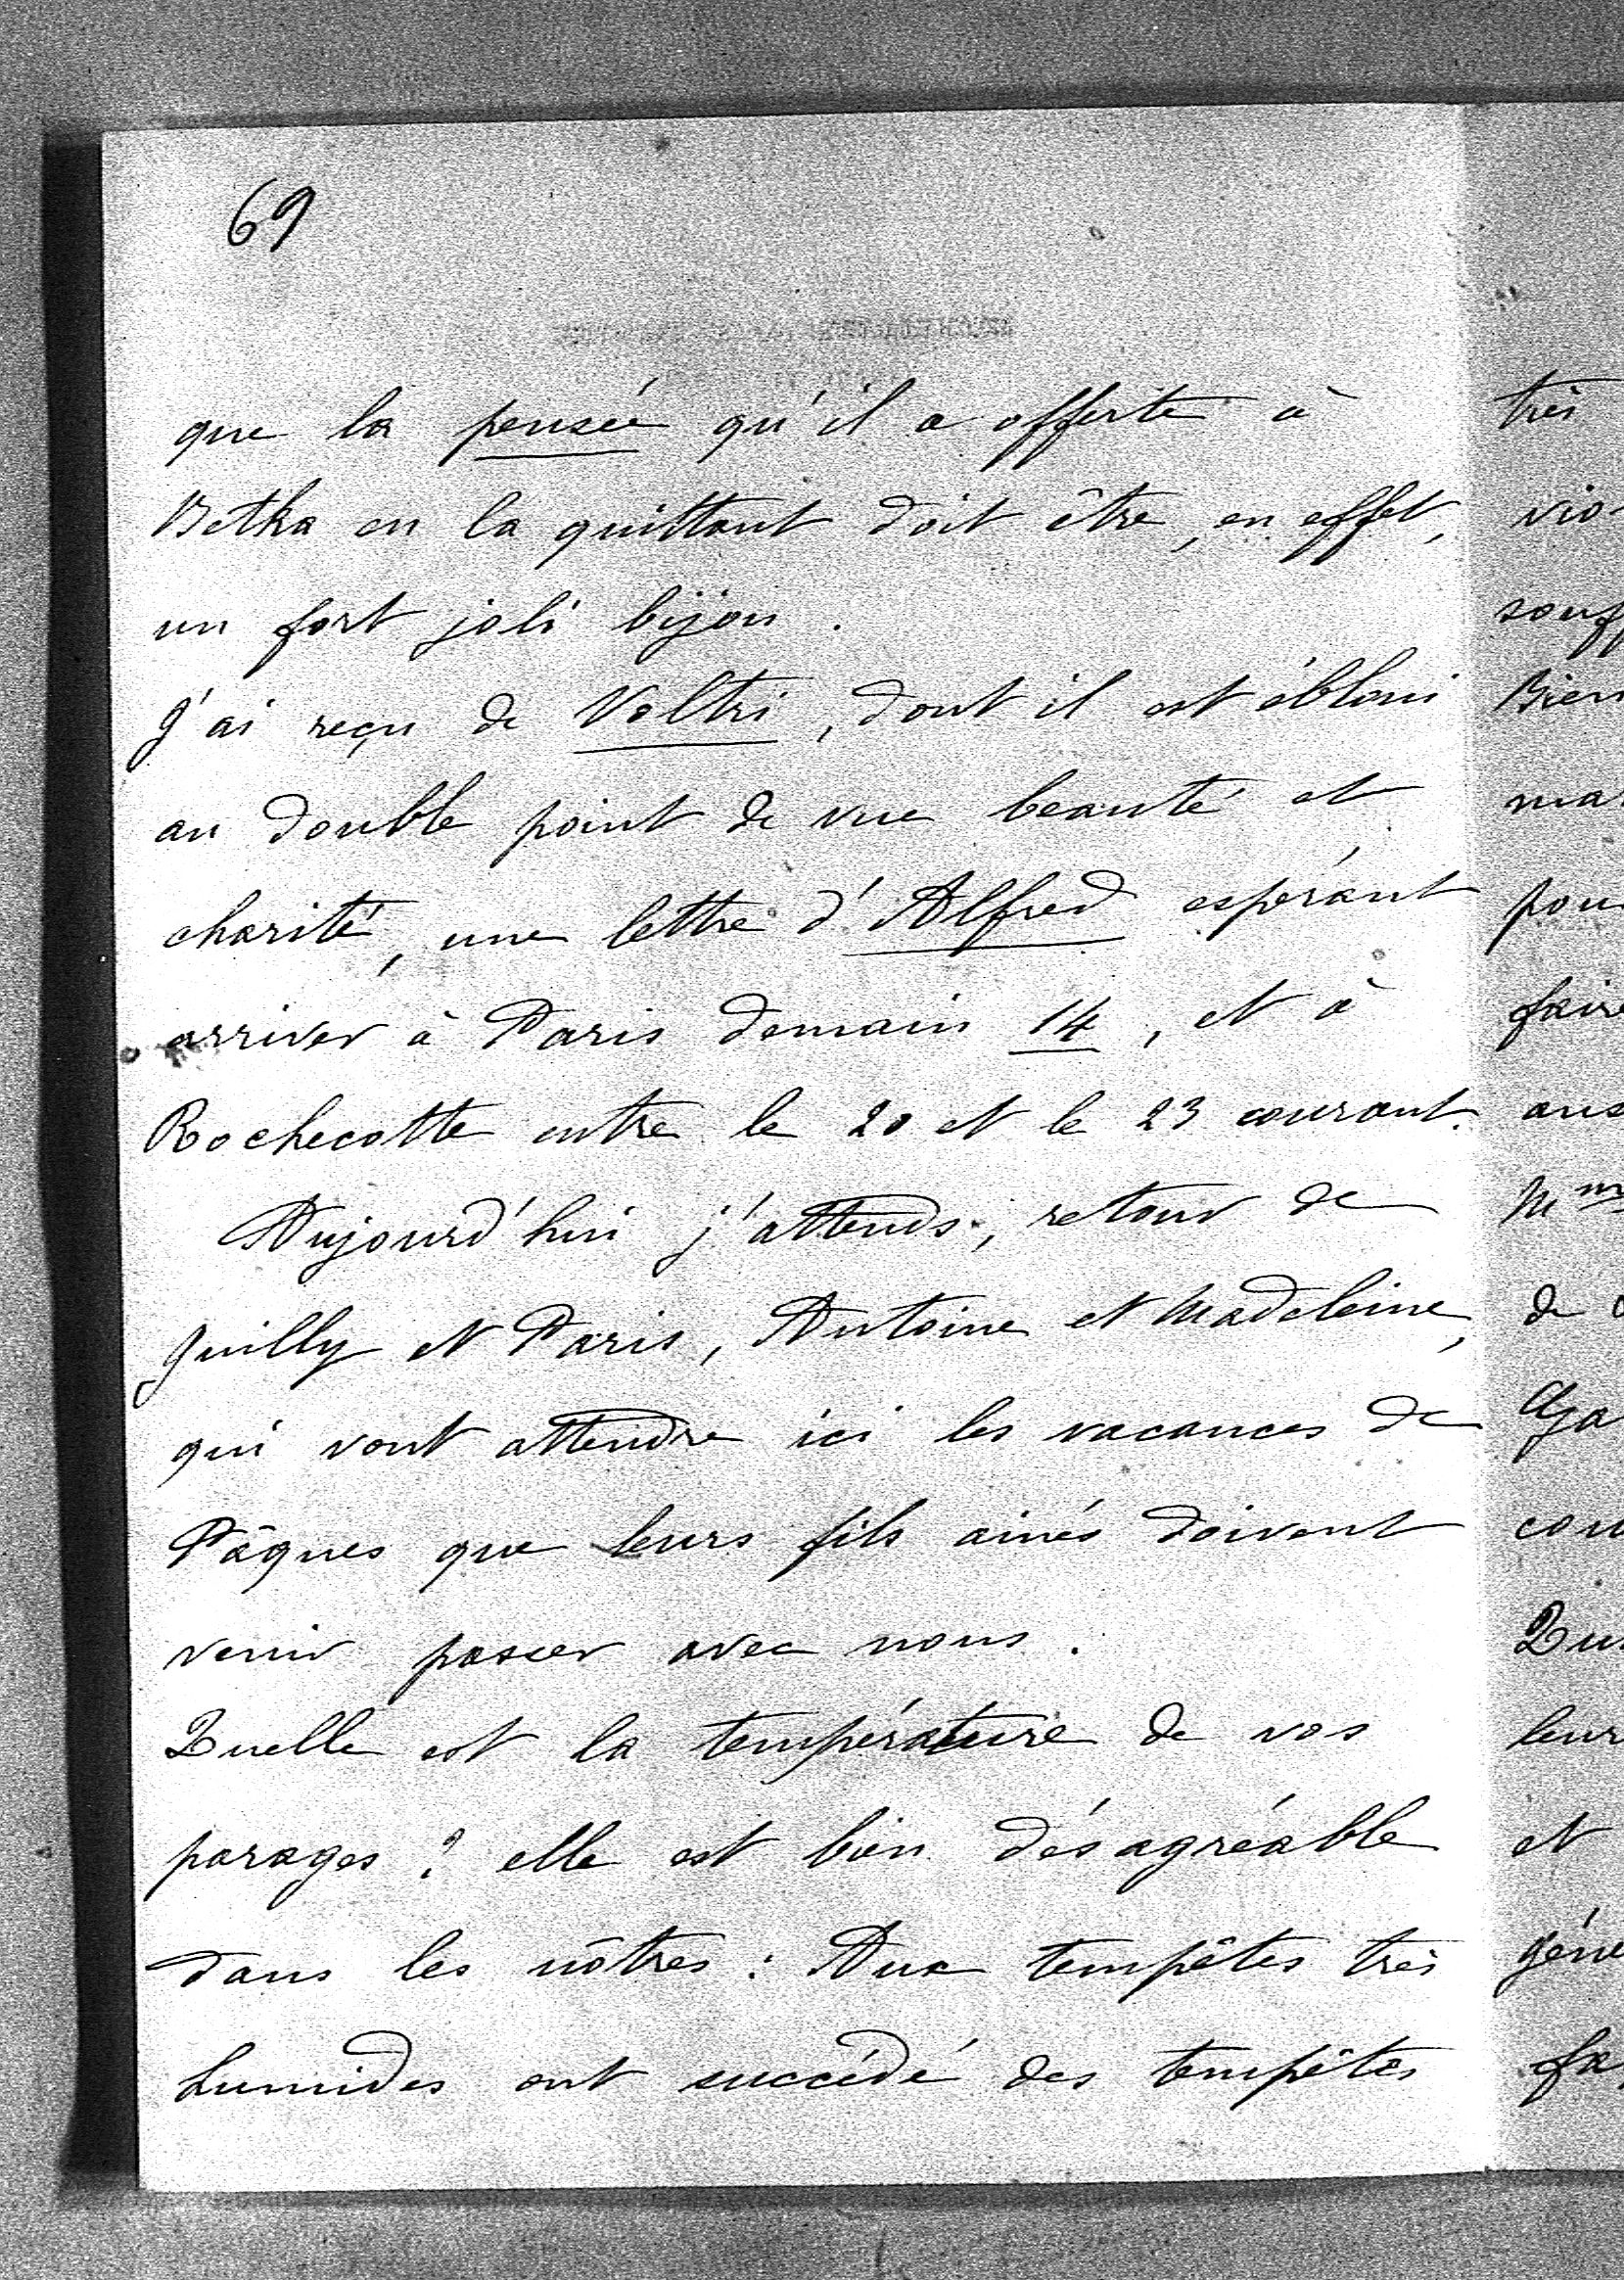 69
que la pensée qu'il a offerte à
Betka en la quittant doit être, en effet,
un fort joli bijou.
J'ai reçu de Voltri, dont il est ébloui
au double point de vue beauté et
charité, une lettre d'Alfred espérant
arriver à Paris demain 14, et à
Rochecotte entre le 20 et le 23 courant.
Aujourd'hui j'attends, retour de
Juilly et Paris, Antoine et Madeleine,
qui vont attendre ici les vacances de
Pâques que leurs fils ainés doivent
venir passer avec nous.
Quelle est la température de vos
parages ? elle est bien désagréable
dans les nôtres : Aux tempêtes très
humides ont succédé des tempêtes
très
vio
souf
Bien
ma
pou
faire
aus
Mm
de
Ga
cou
Qu
leur
et
géné
fa